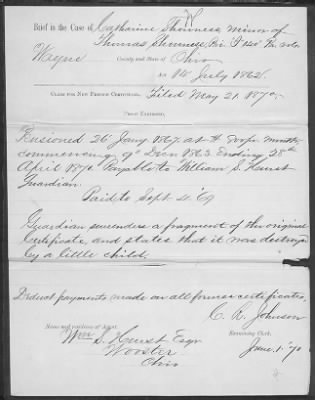 Brief in the Case of Catharine Shonness, minor of
Thomas Shonness, Pri. "F" 120" Vols.
Wayne County and State of Ohio
Act 14 July 1862.
Claim for New Pension Certificate. Filed May 21. 1870.
Proof Exhibited.
Pensioned 26" Jany 1867. at
commencing 9" Decm 1863. Ending 28th
April 1870 Payable to William S. Hurst
Guardian.
Paid to Sept 4. '69
Guardian surrenders a fragment of the original
Certificate, and states that it was destroyed
by a little child.
Deduct payments made on all former certificates.
C. R. Johnson
Name and residence of Agent. Examining Clerk.
Wm S. Hurst Esqr June 1. '70
Wooster
Ohio